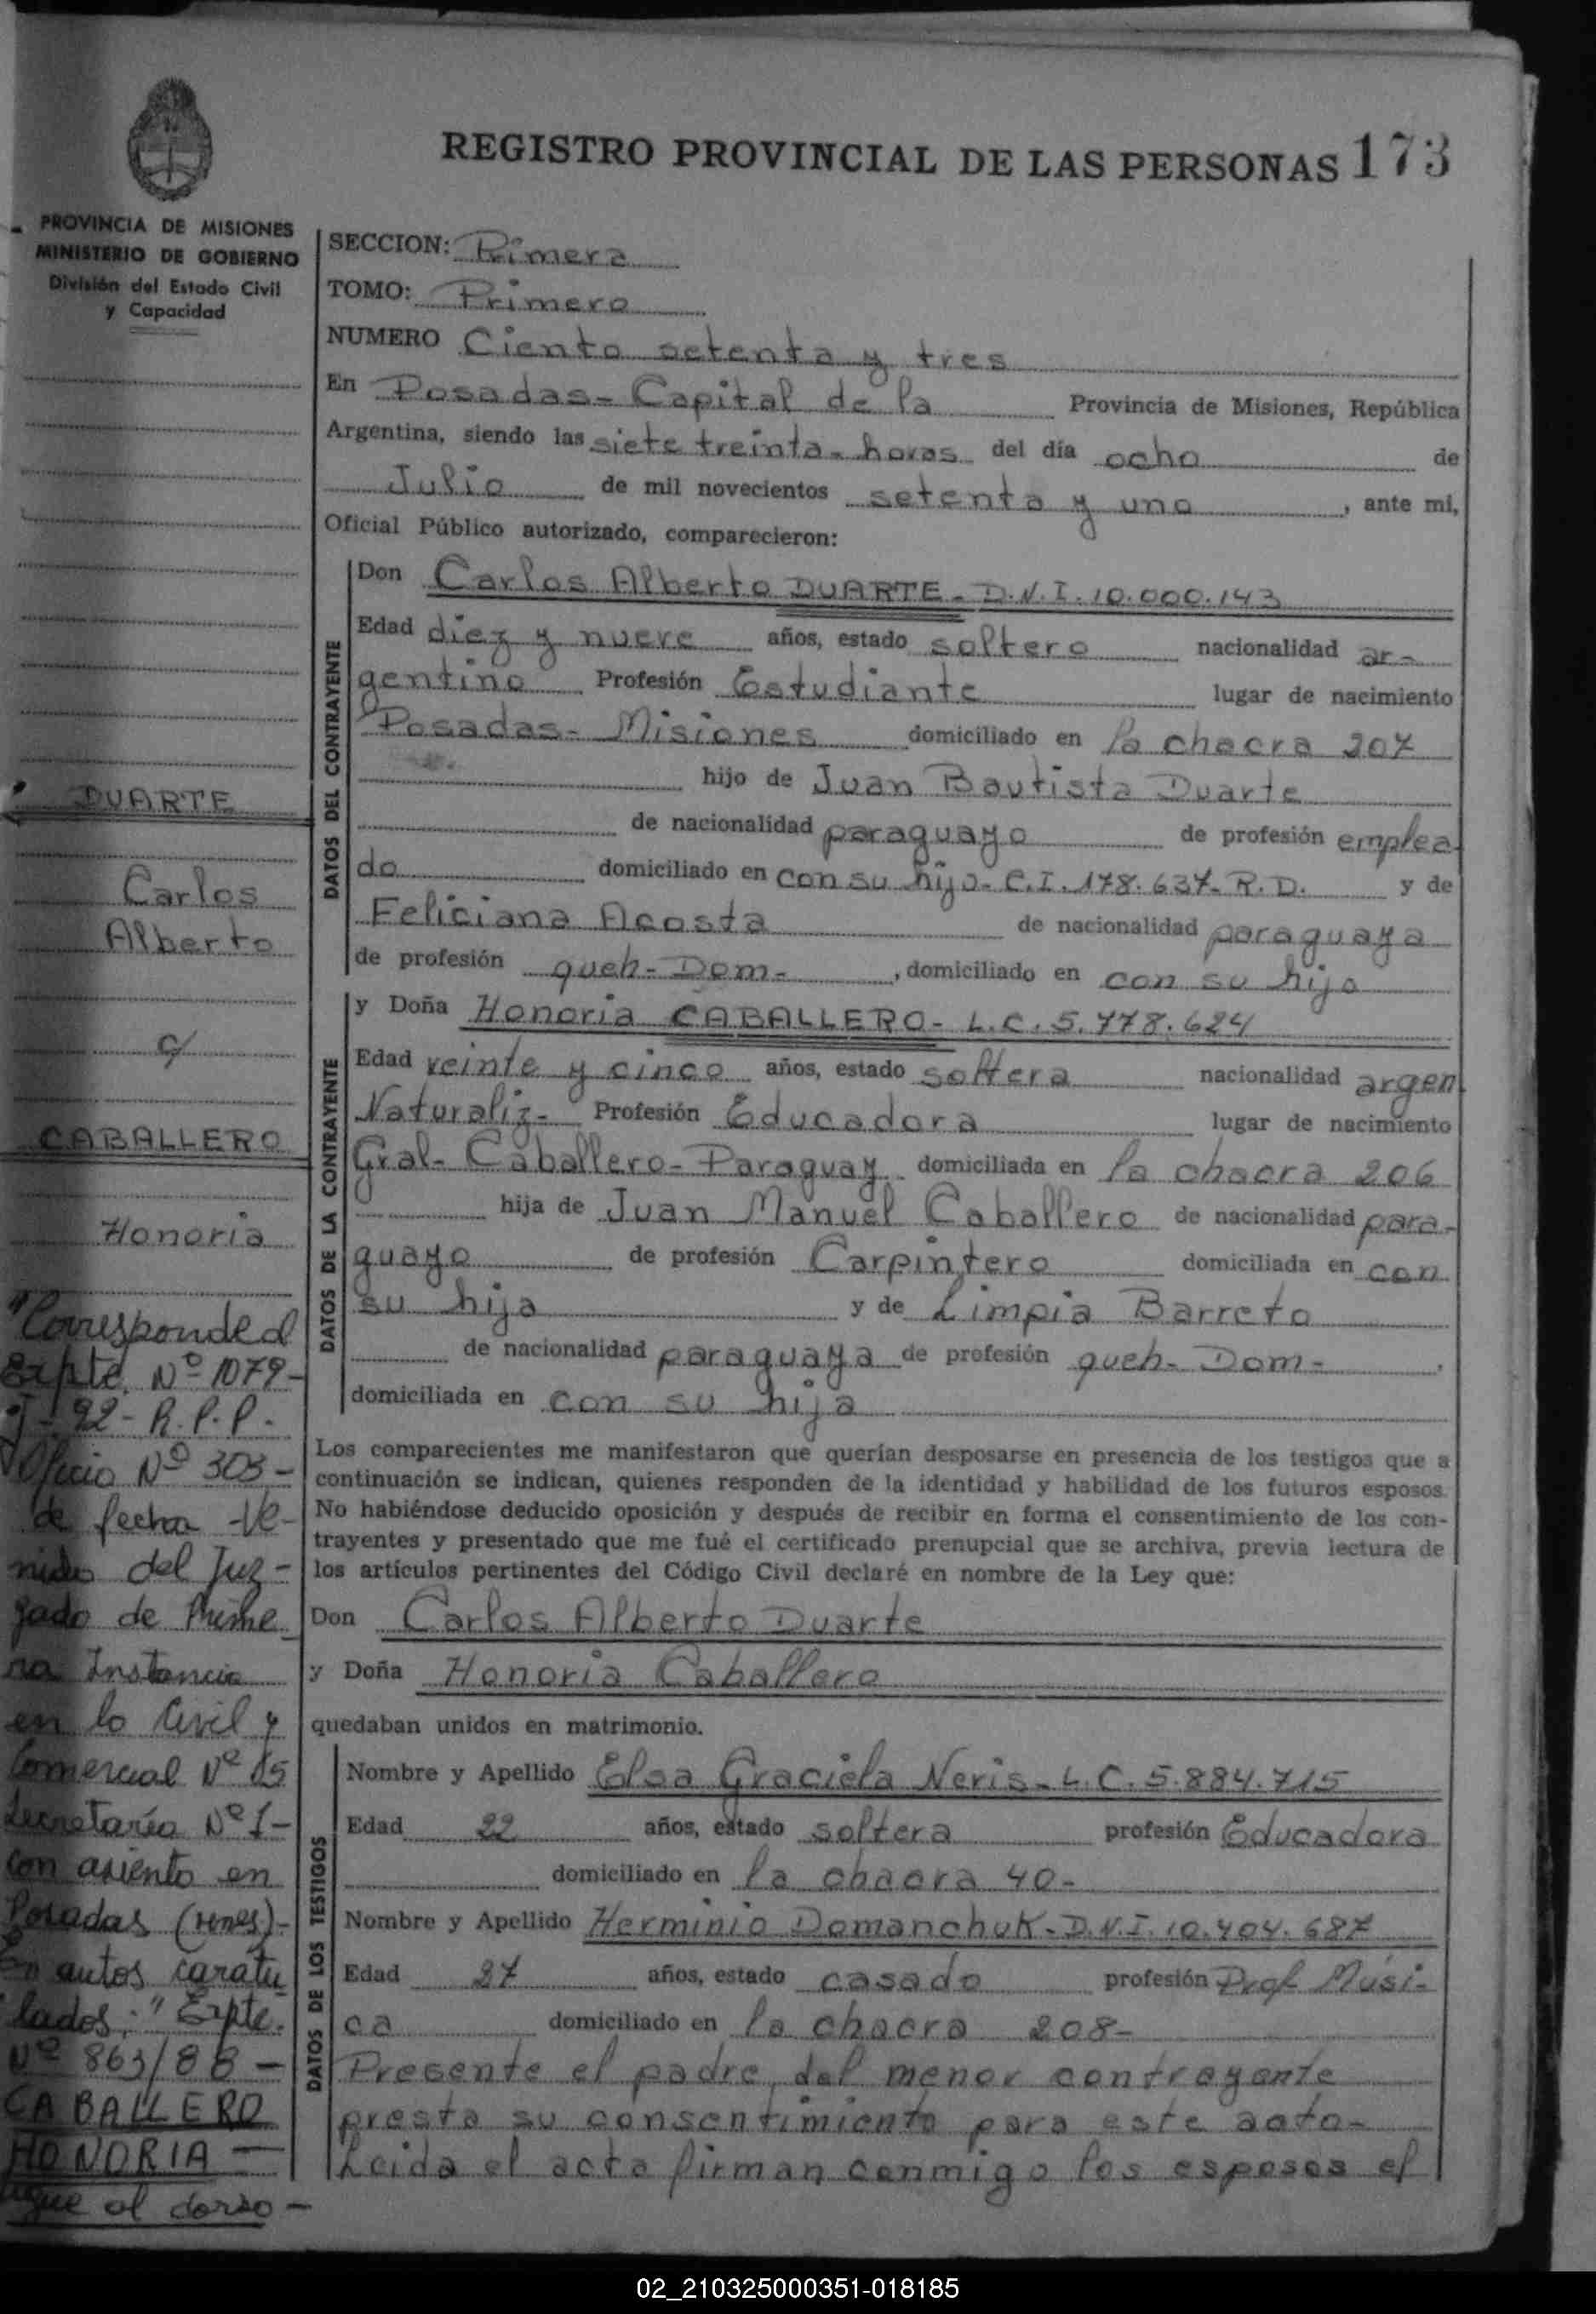 REGISTRO PROVINCIAL DE LAS PERSONAS 173
PROVINCIA DE MISIONES
MINISTERIO DE GOBIERNO
División del Estado Civil
y Capacidad
SECCION: Primera
TOMO: Primero
NUMERO Ciento setenta y tres
En Posadas - Capital de la Provincia de Misiones, República
Argentina, siendo las siete treinta - horas del día ocho de
Julio de mil novecientos setenta y uno, ante mi,
Oficial Público autorizado, comparecieron:
DATOS DEL CONTRAYENTE
Don Carlos Alberto DUARTE - D.N.I. 10.000.143
Edad diez y nueve años, estado soltero nacionalidad ar-
gentino Profesión Estudiante lugar de nacimiento
Posadas - Misiones domiciliado en la chacra 207
hijo de Juan Bautista Duarte
de nacionalidad paraguayo de profesión emplea
do domiciliado en con su hijo - C.I. 178.637 - R.D. y de
Feliciana Acosta de nacionalidad paraguaya
de profesión queh - Dom -, domiciliado en con su hijo
DATOS DE LA CONTRAYENTE
y Doña Honoria CABALLERO - L.C. 5.778.624
Edad veinte y cinco años, estado soltera nacionalidad argen
Naturaliz - Profesión Educadora lugar de nacimiento
Gral - Caballero - Paraguay domiciliada en la chacra 206
hija de Juan Manuel Caballero de nacionalidad para-
guayo de profesión Carpintero domiciliada en con
su hija y de Limpia Barreto
de nacionalidad paraguaya de profesión queh - Dom -,
domiciliada en con su hija
Los comparecientes me manifestaron que querían desposarse en presencia de los testigos que a
continuación se indican, quienes responden de la identidad y habilidad de los futuros esposos.
No habiéndose deducido oposición y después de recibir en forma el consentimiento de los con-
trayentes y presentado que me fué el certificado prenupcial que se archiva, previa lectura de
los artículos pertinentes del Código Civil declaré en nombre de la Ley que:
Don Carlos Alberto Duarte
y Doña Honoria Caballero
quedaban unidos en matrimonio.
DATOS DE LOS TESTIGOS
Nombre y Apellido Elsa Graciela Neris - L.C. 5.884.715
Edad 22 años, estado soltera profesión Educadora
domiciliado en la chacra 40 -
Nombre y Apellido Herminio Domanchuk - D.N.I. 10.404.687
Edad 27 años, estado casado profesión Prof. Músi-
ca domiciliado en la chacra 208 -
Presente el padre del menor contrayente
presta su consentimiento para este acto -
Leida el acta firman conmigo los esposos el
DUARTE
Carlos
Alberto
c/
CABALLERO
Honoria
"Corresponded
Expte. Nº 1079 -
92 - R.P.P. -
Oficio Nº 303 -
de fecha Ve-
nido del Juz-
gado de Prime
ra Instancia
en lo Civil y
Comercial Nº 05
Secretaría Nº 1 -
con asiento en
Posadas (mnes) -
En autos caratu
lados: "Expte.
Nº 863/88 -
CABALLERO
HONORIA -
sigue al dorso -
02_210325000351-018185